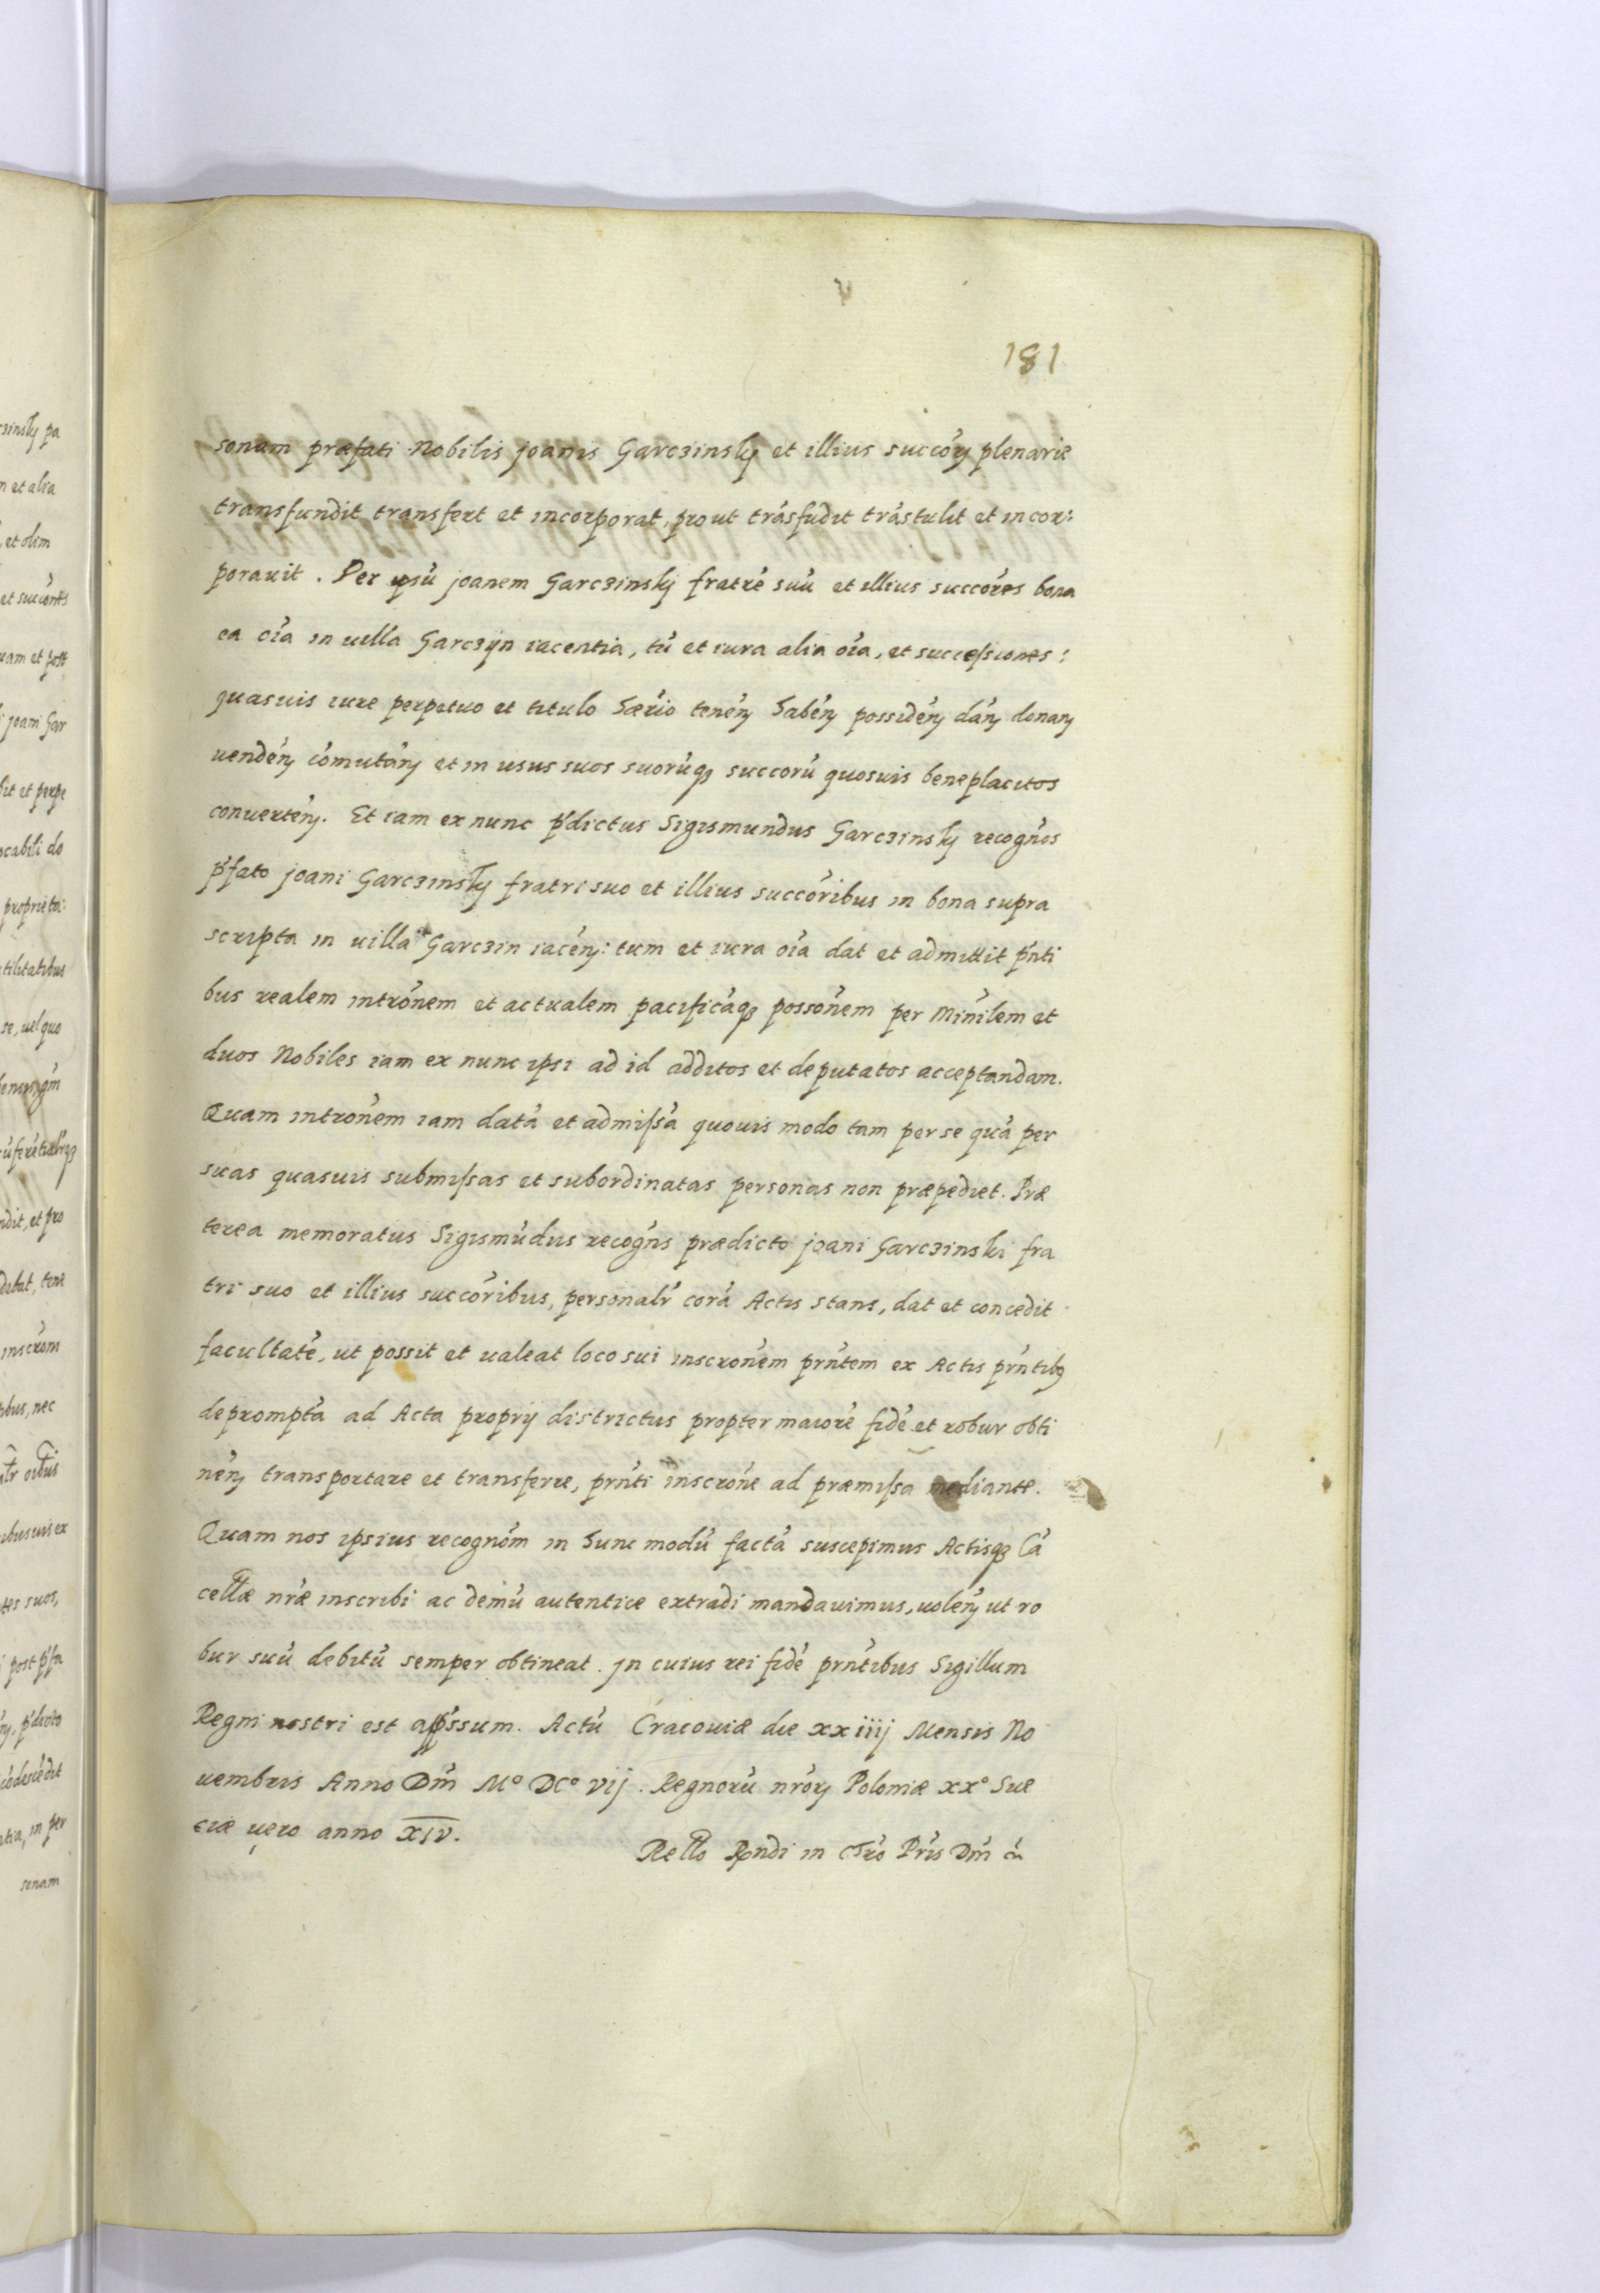 181
sonam præfati Nobilis joanis Garczinskÿ et illius succoꝝ plenarie
transfundit transfert et incorporat, prout trãsfũdit trãstulit et incor:
porauit. Per ipsũ joanem Garczinskÿ fratrẽ suũ et illius succõres bona
ea oĩa in uilla Garczÿn iacentia, tũ et iura alia oĩa, et successiones:
quasuis iure perpetuo et titulo hærio tenen̄ habeñ possideñ dañ donan̄
uendeñ cõmutañ et in usus suos suorũqꝫ succorũ quosuis beneplacitos
conuerteñ. Et iam ex nunc p̃dictus Sigismundus Garczinskÿ recognñs
p̃fato joani Garczinskÿ fratri suo et illius succõribus in bona supra
scripta in uilla Garczin iaceñ: tum et iura oĩa dat et admittit p̃nti
bus realem intrõnem et actualem pacificãqꝫ possõnem per Minĩlem et
duos Nobiles iam ex nunc ipsi ad id additos et deputatos acceptandam.
Quam intrõnem iam datã et admissã quouis modo tam per se quã per
suas quasuis submissas et subordinatas personas non præpediet. Præ
terea memoratus Sigismũdus recogñs prædicto joani Garczinski fra
tri suo et illius succõribus, personalr̃ corã Actis stans, dat et concedit
facultatẽ, ut possit et ualeat loco sui inscrõnem prñtem ex Actis prñtibꝫ
depromptã ad Acta proprij districtus propter maiorẽ fidẽ et robur obti
neñ transportare et transferre, prñti inscrõne ad præmissa mediante.
Quam nos ipsius recognõm in hunc modũ factã suscepimus Actisqꝫ Cã
cellæ nr̃æ inscribi ac demũ autentice extradi mandauimus, uoleñ ut ro
bur suũ debitũ semper obtineat. jn cuius rei fidẽ prñtibus Sigillum
Regni nostri est app̃ssum. Actũ Cracouiæ die xxiiij Mensis No
uembris Anno Dm̃ Mº DCº vij. Regnorũ nr̃oꝝ Poloniæ xxº Sue
ciæ uero anno XIV.
Rello Rndi in Chro Pr̃is Dm̃ &